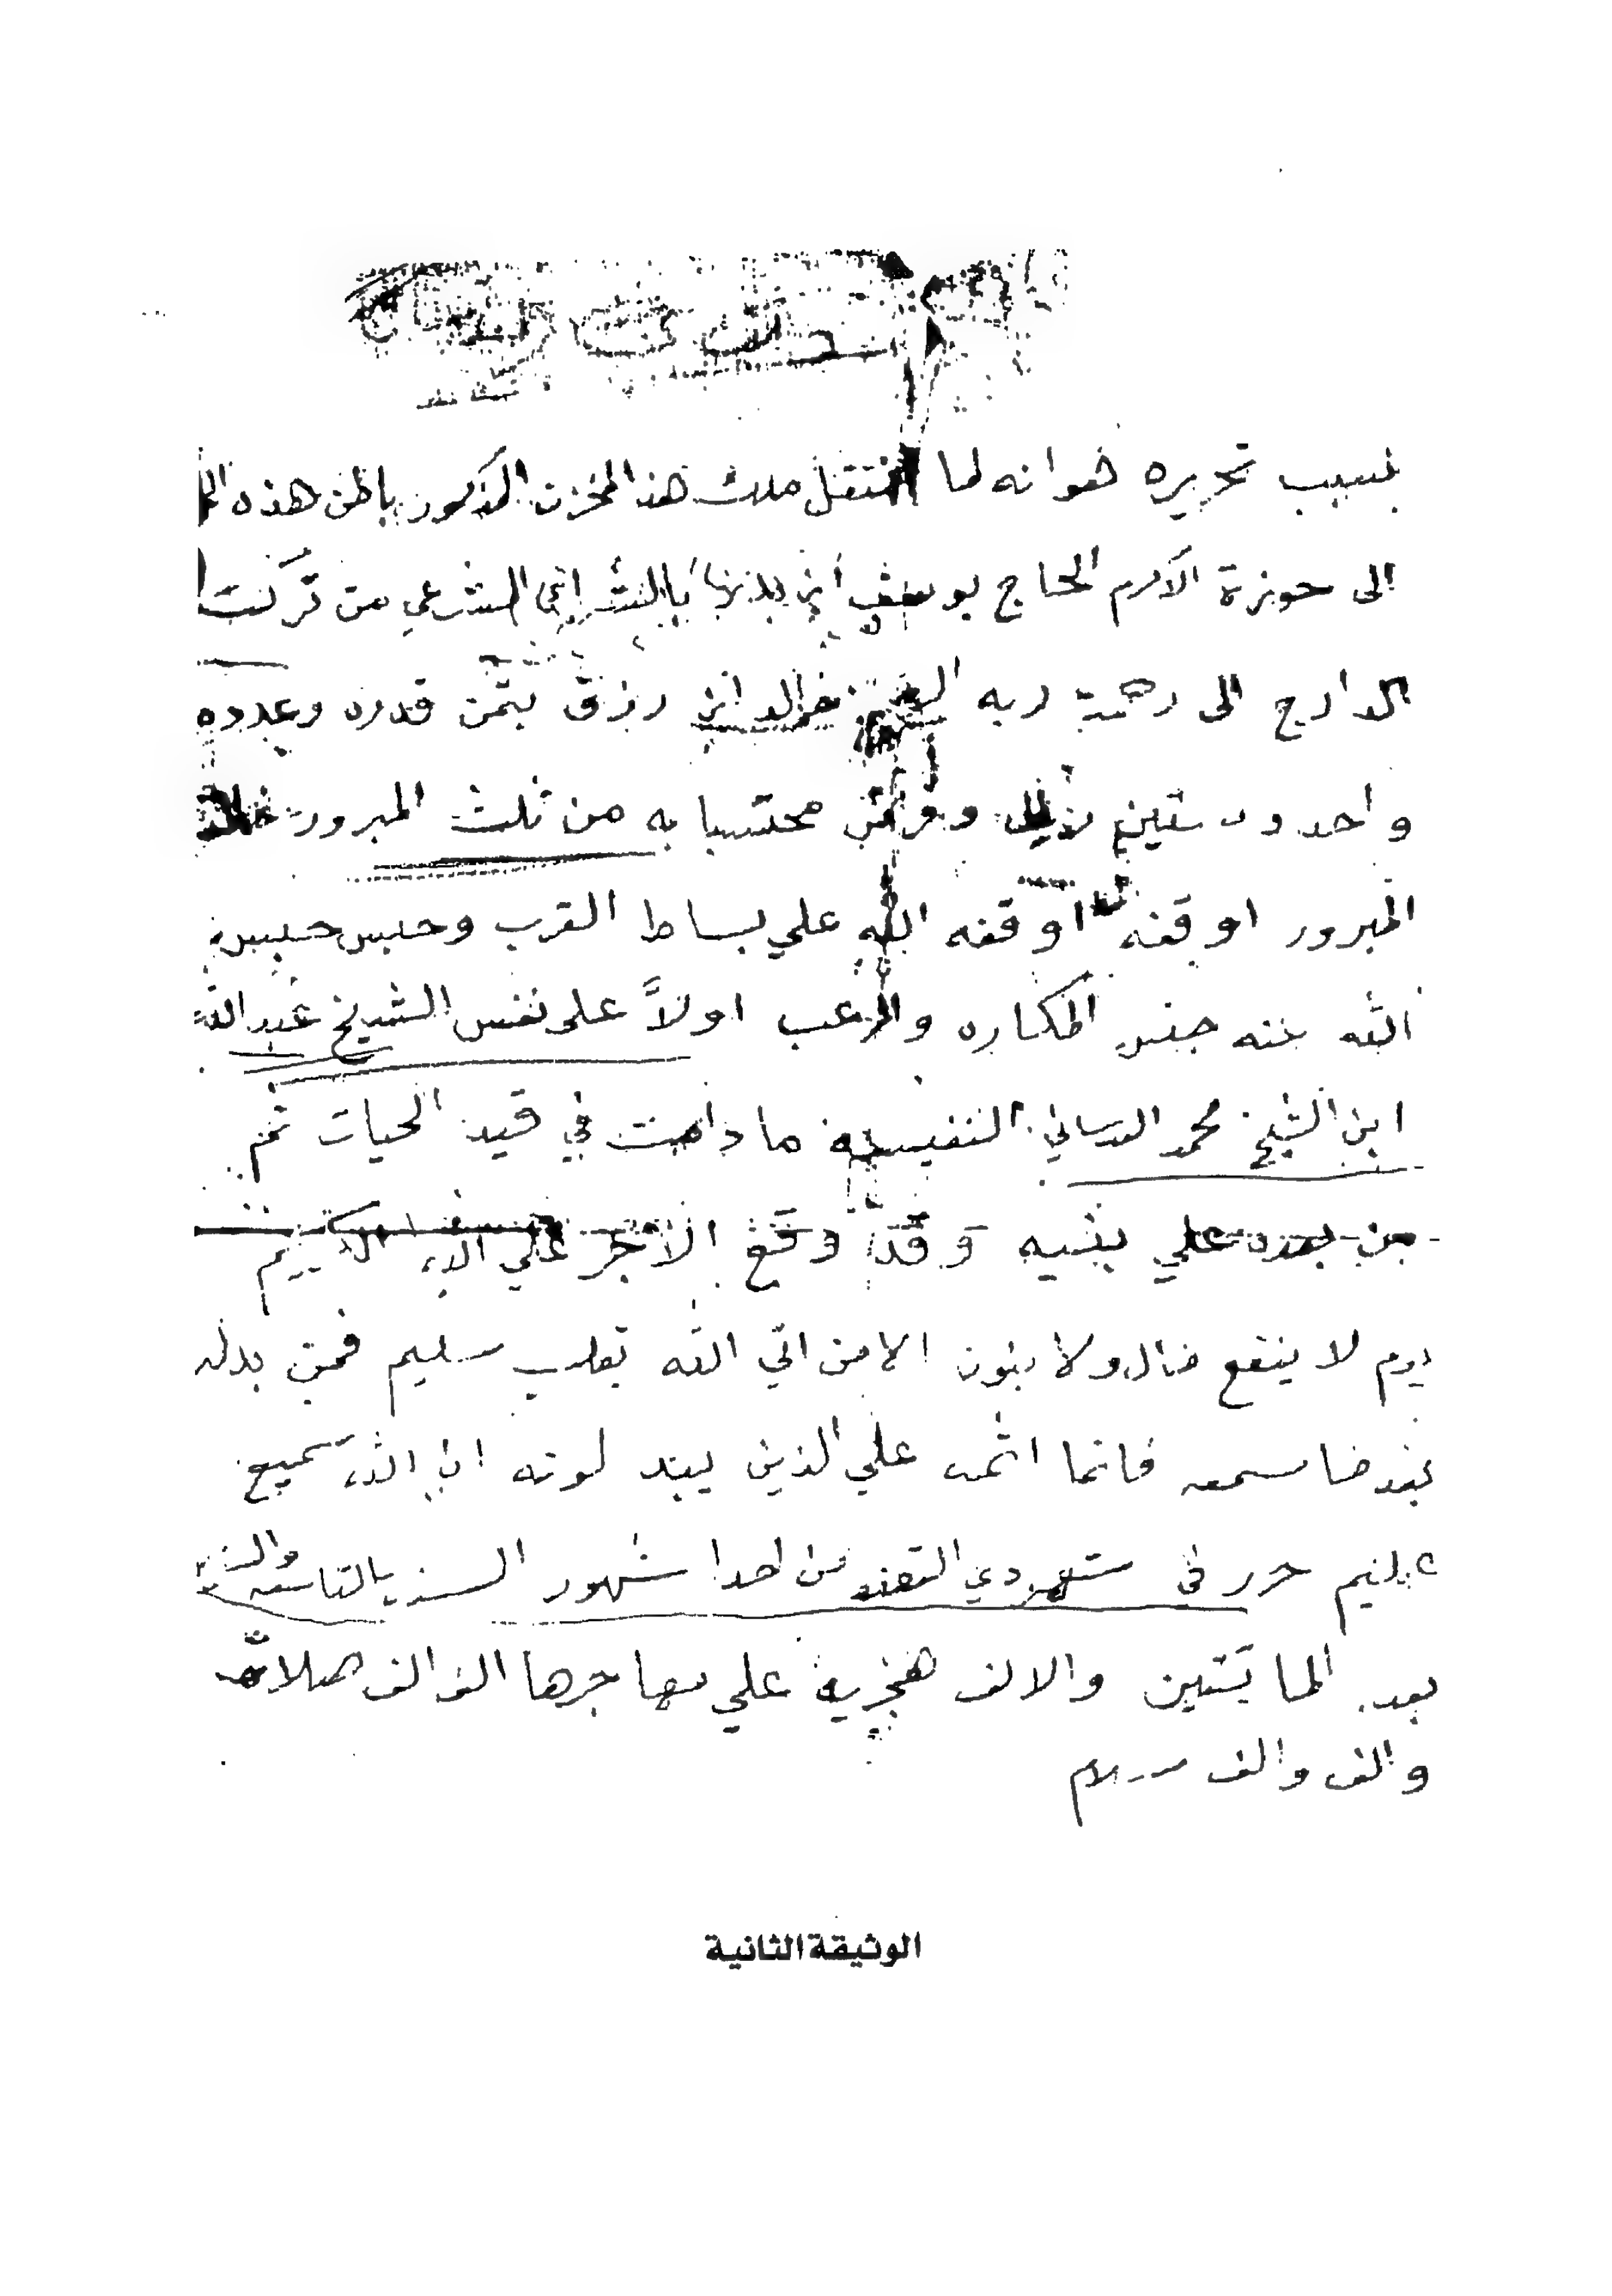 بسبب تحريره هوانه لما انتقل ملك هذا المخزن المذكور باطن هذه
الى حوزة الاكرم الحاج يوسف ابن بالشراى الشرعي من تركت
الدارج الى رحمت ربه خالد ابن رزق بثمن قدره وعدده
واحد وستين محتسبا به من ثلث المبرور خالد
المبرور اوقفه اوقفه الله علي بساط القرب وحبس حبس
الله عنه جنس المكاره والرعب اولاً على نفس الشيخ عبد الله
ابن الشيخ محمد النفيسه ما دامت في قيد الحيات ثم
من بعده علي بنيه وقد وقع الاجر علي الاه الكريم
يوم لا ينفع مال ولا بنون الا من اتي الله بقلب سليم فمن بدله
بعد ما سمعه فانما اثمه علي الذين يبد لونه ان الله سميع
عليم حرر في شهر ذي القعده من احدا شهور السنه بالتاسعه
بعد المايتين والالف هجريه علي مهاجرها الف الف صلاة
والف والف سلام
الوثيقة الثانية